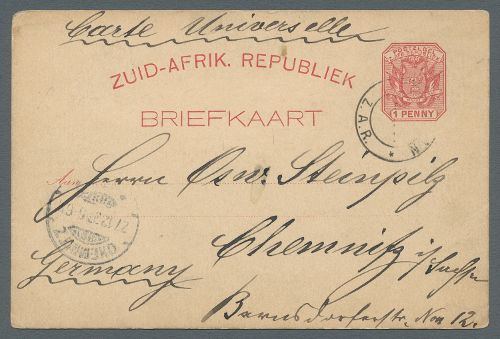 Carte Universelle
ZUID-AFRIK. REPUBLIEK
POSTZEGEL
1 PENNY
BRIEFKAART
Z.A.R.
Aan
Herrn Osw. Steinpilz
CHEMNITZ
Chemnitz i/Sachsen
Germany
Bernsdorferstr. Nro 12.